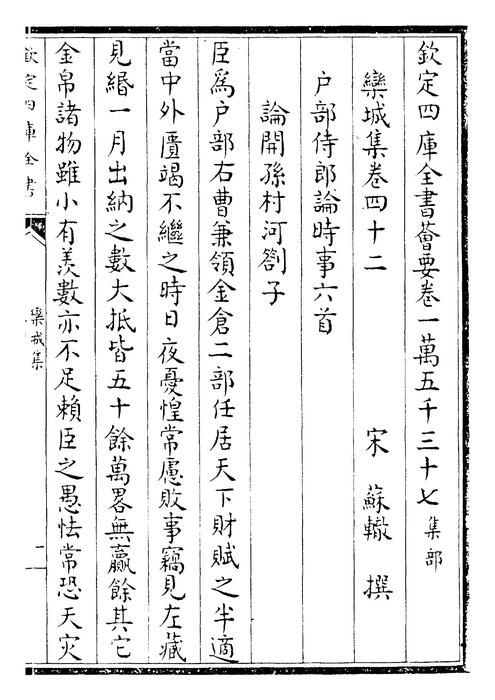 欽定四庫全書薈要卷一萬五千三十七 集部
欒城集卷四十二 宋 蘇轍 撰
户部侍郎論時事六首
論開孫村河劄子
臣為户部右曹兼領金倉二部任居天下財賦之半適
當中外匱竭不繼之時日夜憂惶常慮敗事竊見左藏
見緡一月出納之數大抵皆五十餘萬畧無贏餘其它
金帛諸物雖小有羡數亦不足賴臣之愚怯常恐天灾
欽定四庫全書
欒城集